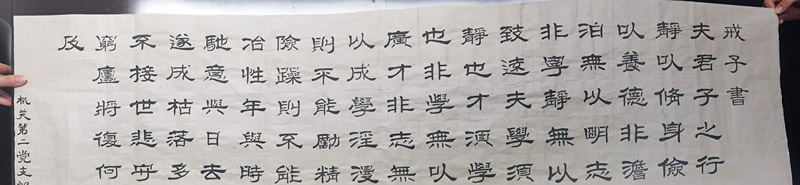 戒子書
夫君子之行
靜以脩身儉
以養德非澹
泊無以明志
非寧靜無以
致遠夫學須
靜也才須學
也非學無以
廣才非志無
以成學淫漫
則不能勵精
險躁則不能
冶性年與時
馳意與日去
遂成枯落多
不接世悲乎
窮廬將復何
及
机关第二党支部